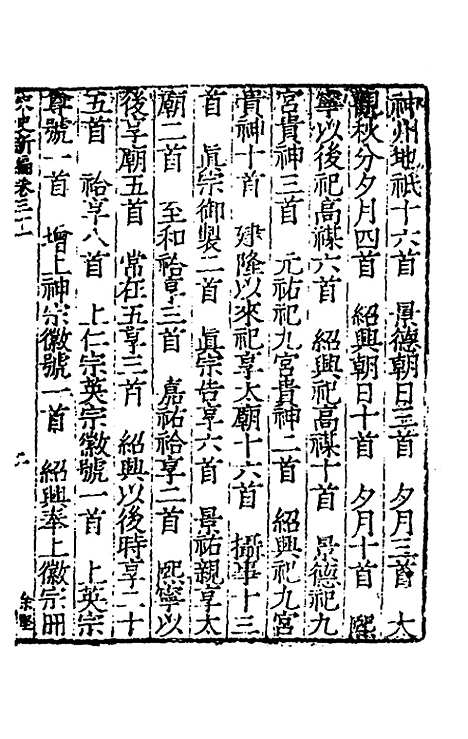 神州地祇十六首　景德朝日三首　夕月三首　大
觀秋分夕月四首　紹興朝日十首　夕月十首　熙
寧以後祀高禖六首　紹興祀高禖十首　景德祀九
宮貴神三首　元祐祀九宮貴神二首　紹興祀九宮
貴神十首　建隆以來祀享太廟十六首　攝事十三
首　眞宗御製二首　眞宗告享六首　景祐親享太
廟二首　至和祫享三首　嘉祐祫享二首　熙寧以
後享廟五首　常在五享三首　紹興以後時享二十
五首　祫享八首　上仁宗英宗徽號一首　上英宗
尊號一首　增上神宗徽號一首　紹興奉上徽宗冊
宋史新編卷三十一